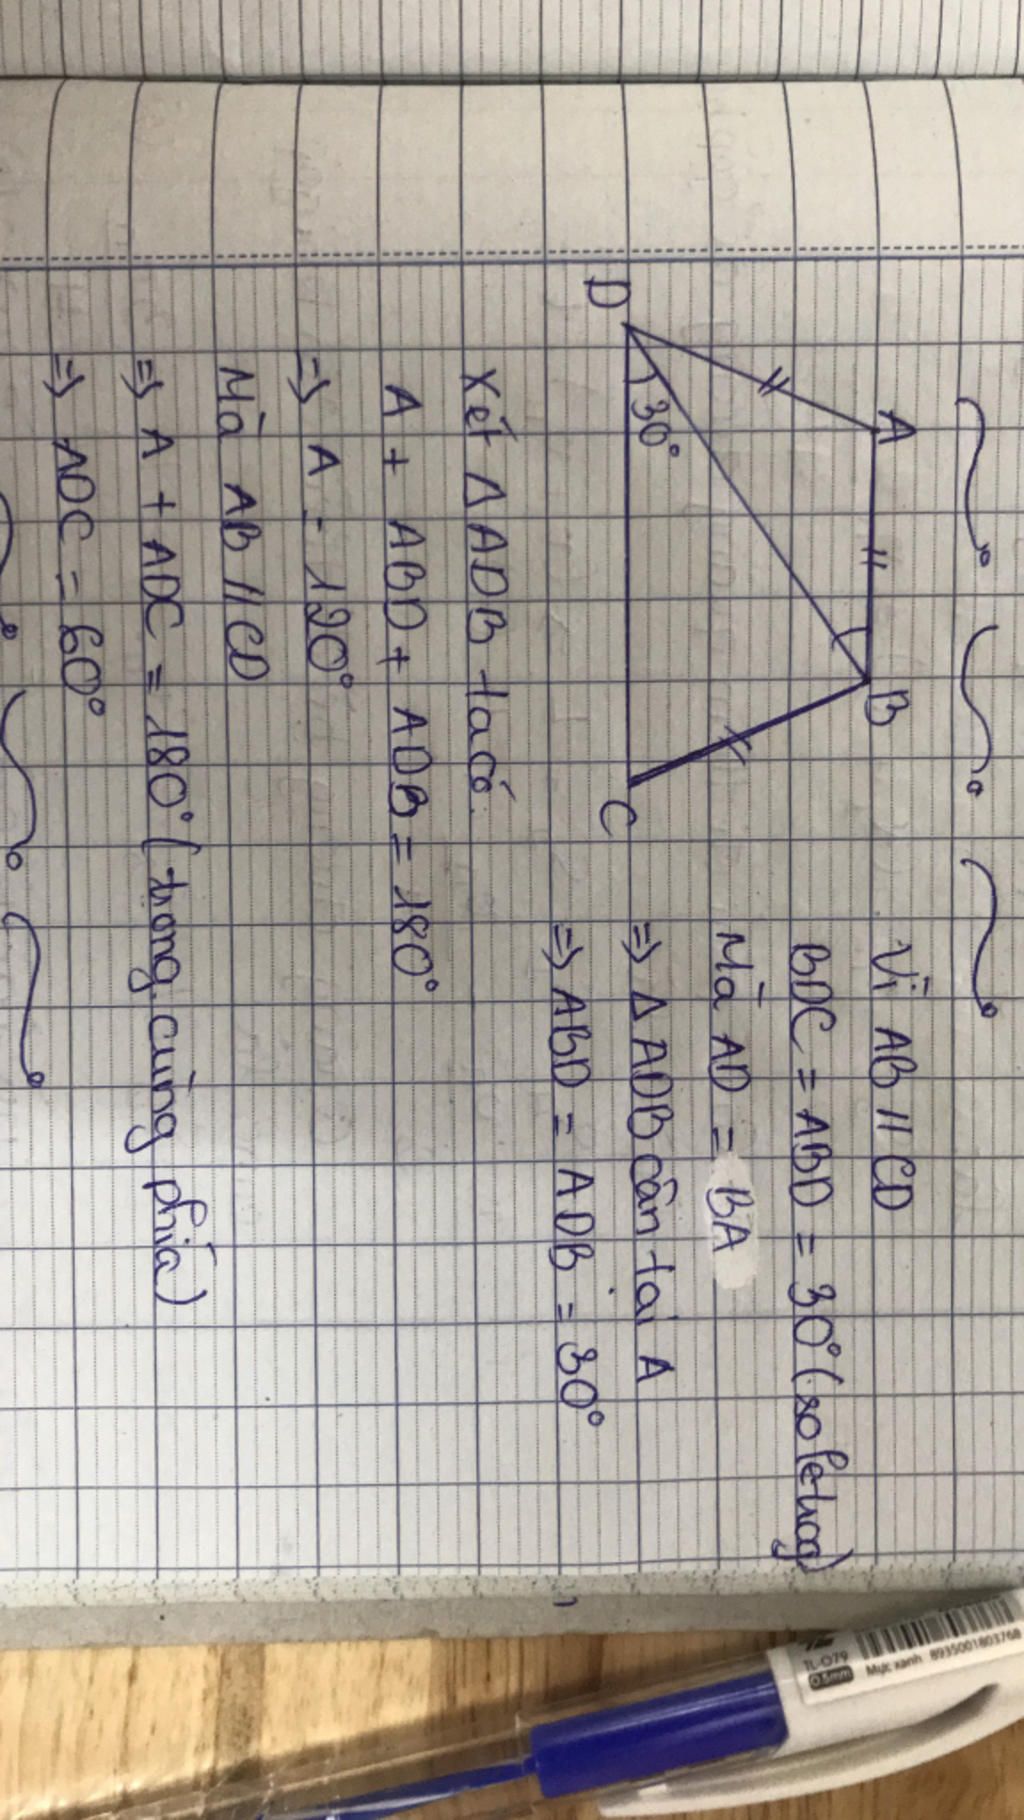 A
B
D
30°
C
Vì AB // CD
BDC = ABD = 30° (so le trong)
Mà AD = BA
=> Δ ADB cân tại A
=> ABD = ADB = 30°
Xét Δ ADB ta có:
A + ABD + ADB = 180°
=> A = 120°
Mà AB // CD
=> A + ADC = 180° (trong cùng phía)
=> ADC = 60°
TL-079
0.5mm
Mực xanh 8935001803768